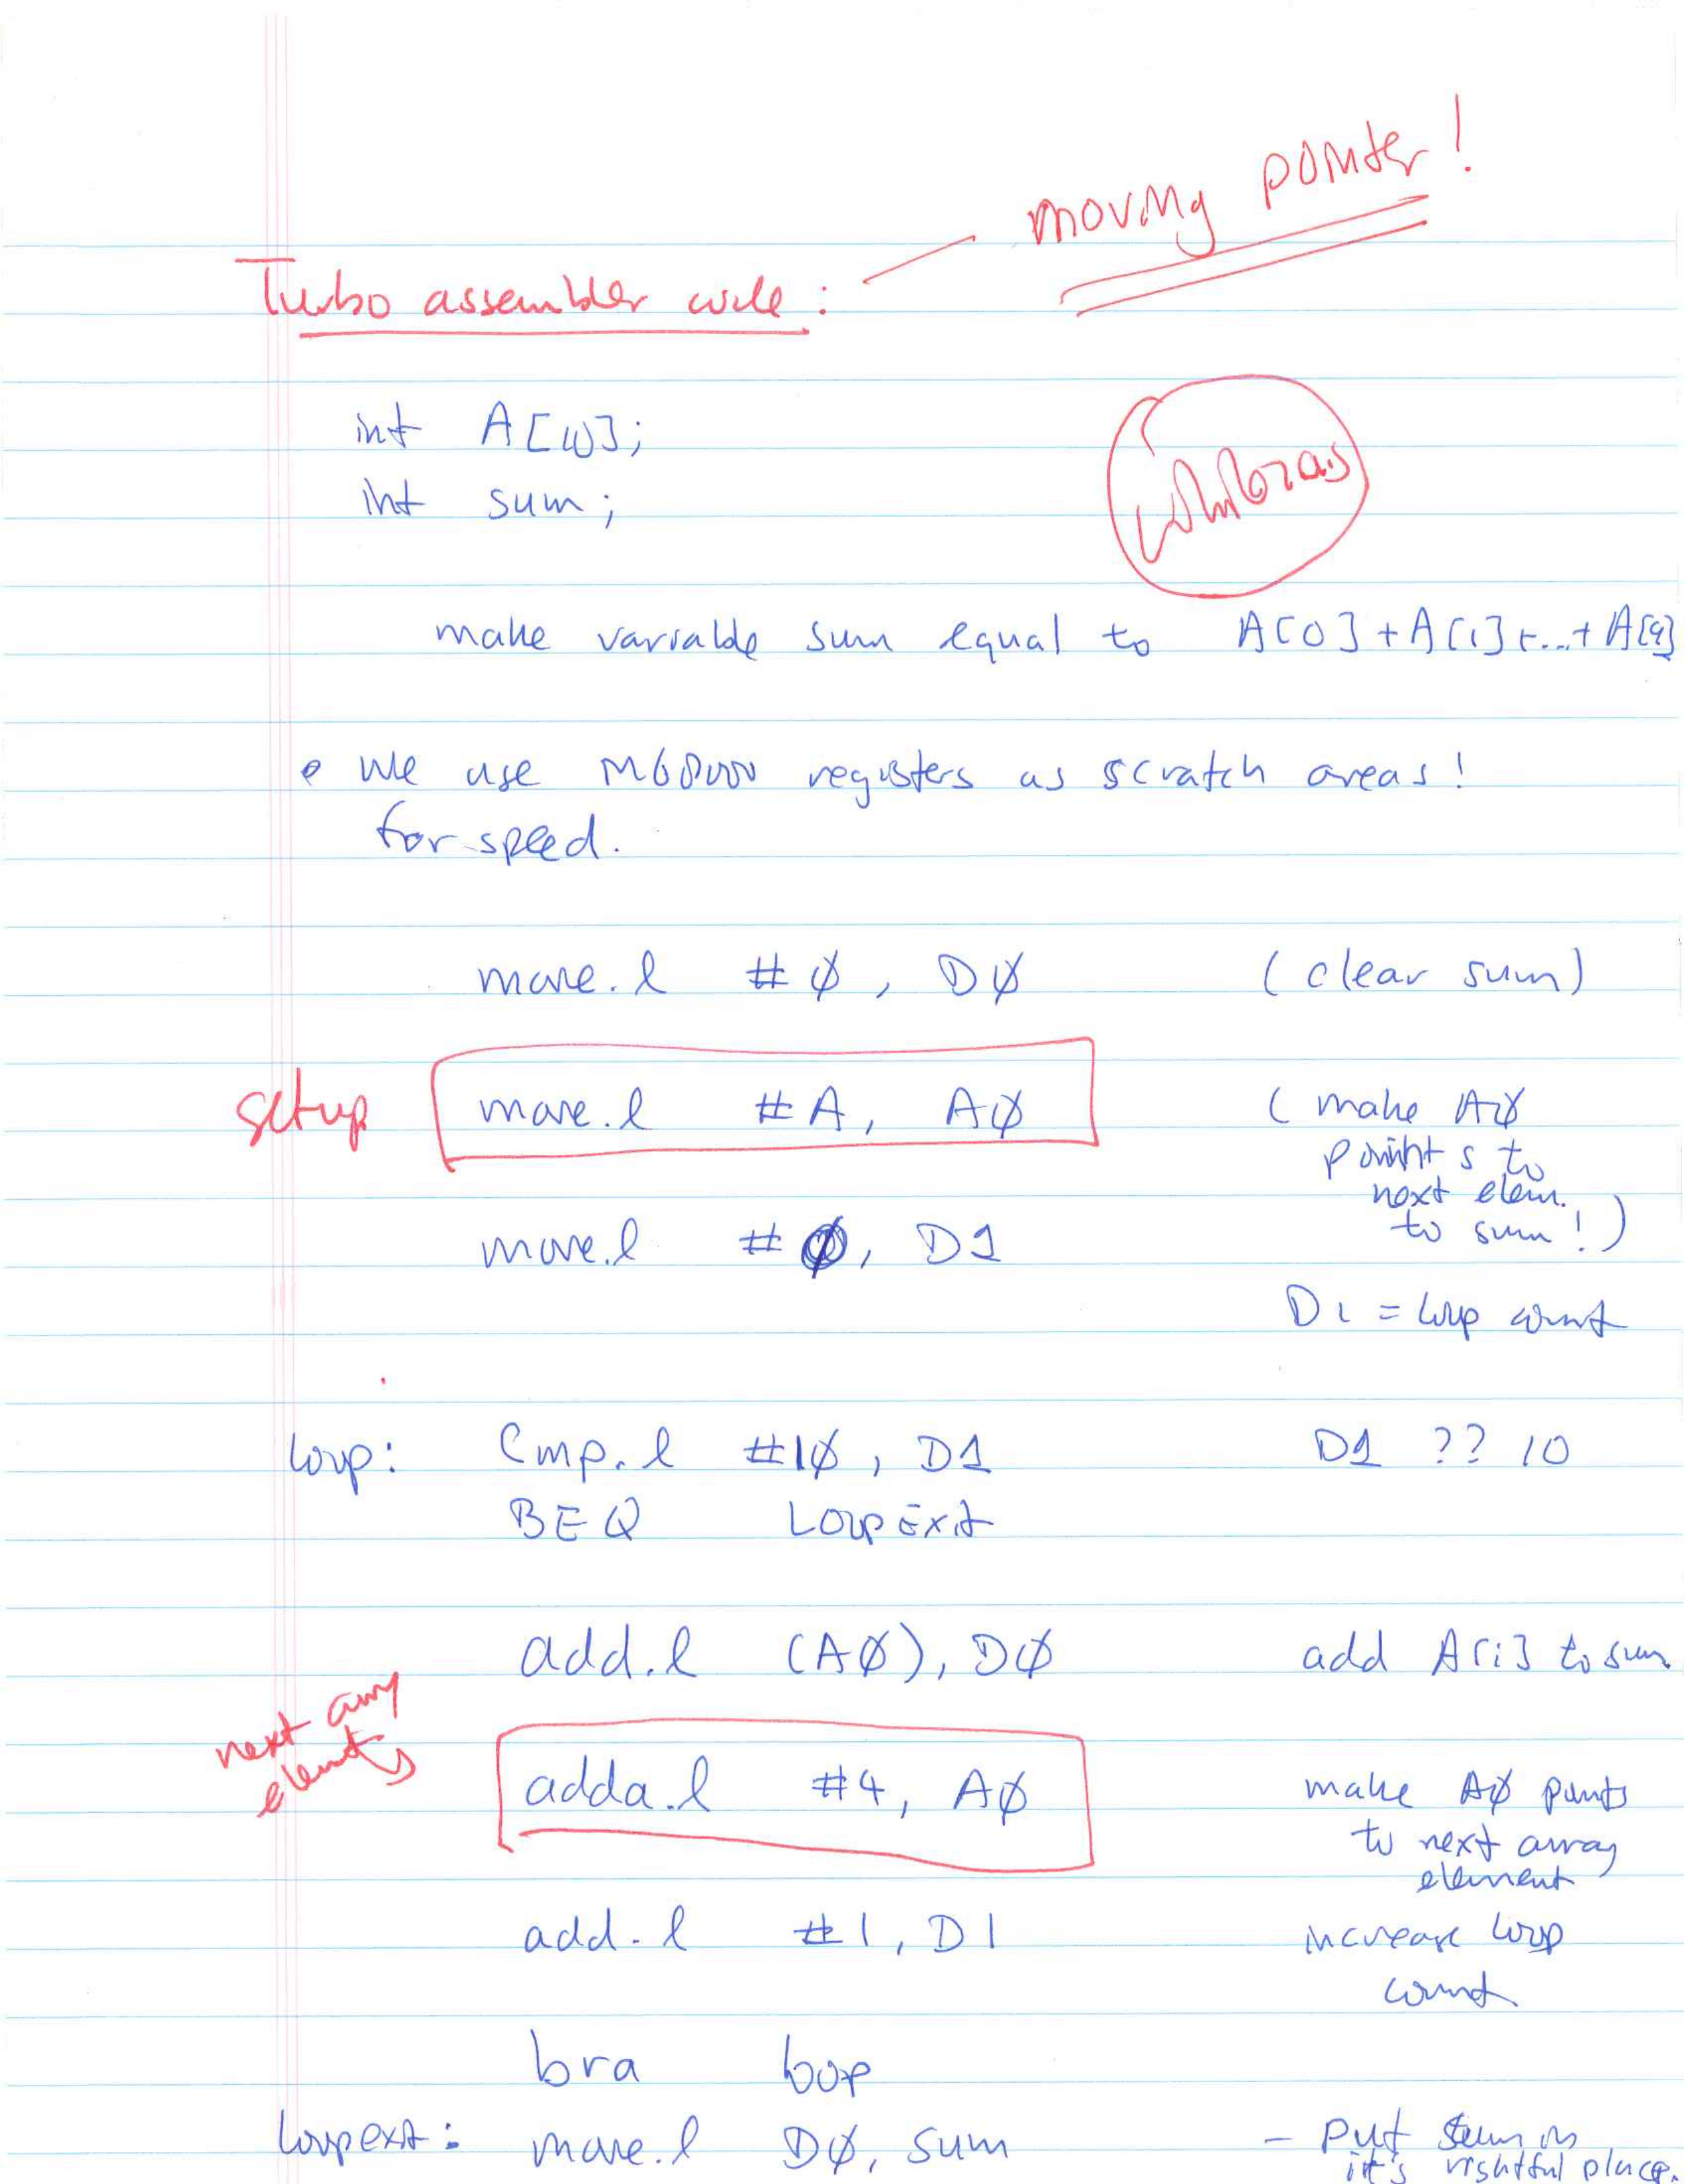 moving pointer!
Turbo assembler code:
int A[10];
int sum;
make variable sum equal to A[0]+A[1]+...+A[9]
• We use M68000 registers as scratch areas!
for speed.
move.l #0, D0 (clear sum)
setup move.l #A, A0 (make A0
points to
next elem.
to sum!)
move.l #0, D1
D1 = loop count
loop: Cmp.l #10, D1 D1 ?? 10
BEQ LoopExit
add.l (A0), D0 add A[i] to sum
next array
elements
adda.l #4, A0 make A0 points
to next array
element
add.l #1, D1 increase loop
count
bra loop
loopexit: move.l D0, sum - put sum in
it's rightful place.